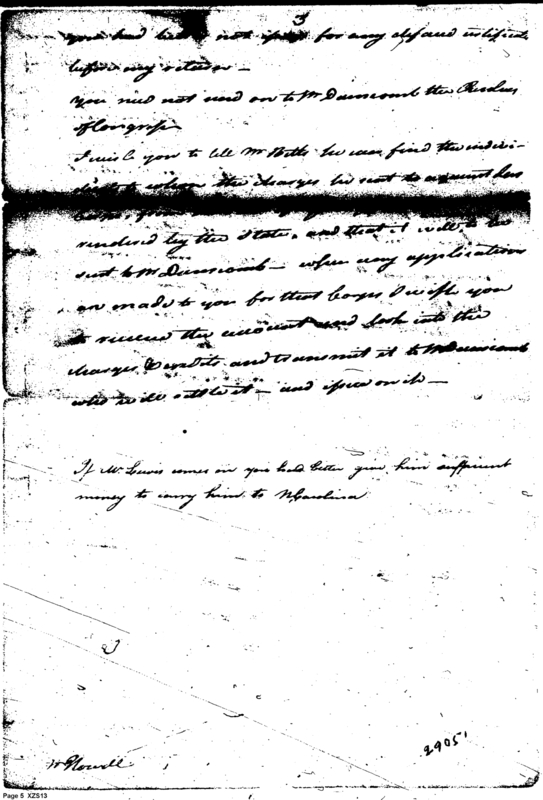 3
you had better not for any certificate
before my return —
you need not send on to Mr Dunscomb the Resolves
of Congress
I wish you to tell Mr he can find the indivi-
to whom the charges he sent to
from
rendered by the State, and that I will be
sent to Mr Dunscomb — when any applications
are made to you for that I wish you
to receive the account and look into the
charges & credits and transmit it to Mr Dunscomb
who will settle it — and on it —
If Mr Lewis comes on you had better give him sufficient
money to carry him to N Carolina
W Howell
29051
Page 5 XZS13